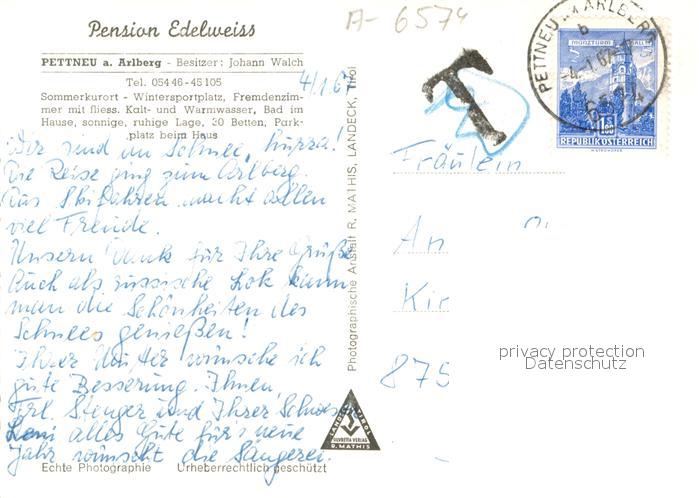 Pension Edelweiss
A- 6574
PETTNEU a. Arlberg - Besitzer: Johann Walch
Tel. 05446-45105
4/1 67
Sommerkurort - Wintersportplatz, Fremdenzim-
mer mit fliess. Kalt- und Warmwasser, Bad im
Hause, sonnige, ruhige Lage, 30 Betten, Park-
platz beim Haus
Wir sind im Schnee, hurra!
Die Reise ging zum Arlberg.
Das Skifahren macht allen
viel Freude.
Unsern Dank für Ihre Grüße
Auch als russische kann
man die Schönheiten des
Schnees genießen!
Ihrer Mutter wünsche ich
gute Besserung. Ihnen,
Frl. Stenger und Ihrer Schwes
Leni alles Gute für's neue
Jahr wünscht die
Echte Photographie Urheberrechtlich geschützt
Photographische Anstalt R. MATHIS, LANDECK, Tirol
SILVRETTA VERLAG
R. MATHIS
T
PETTNEU AM ARLBERG
b
-4.1.67
6574
MÜNZTURM HALL
1.50
REPUBLIK ÖSTERREICH
Fräulein
An
Kir
875
privacy protection
Datenschutz